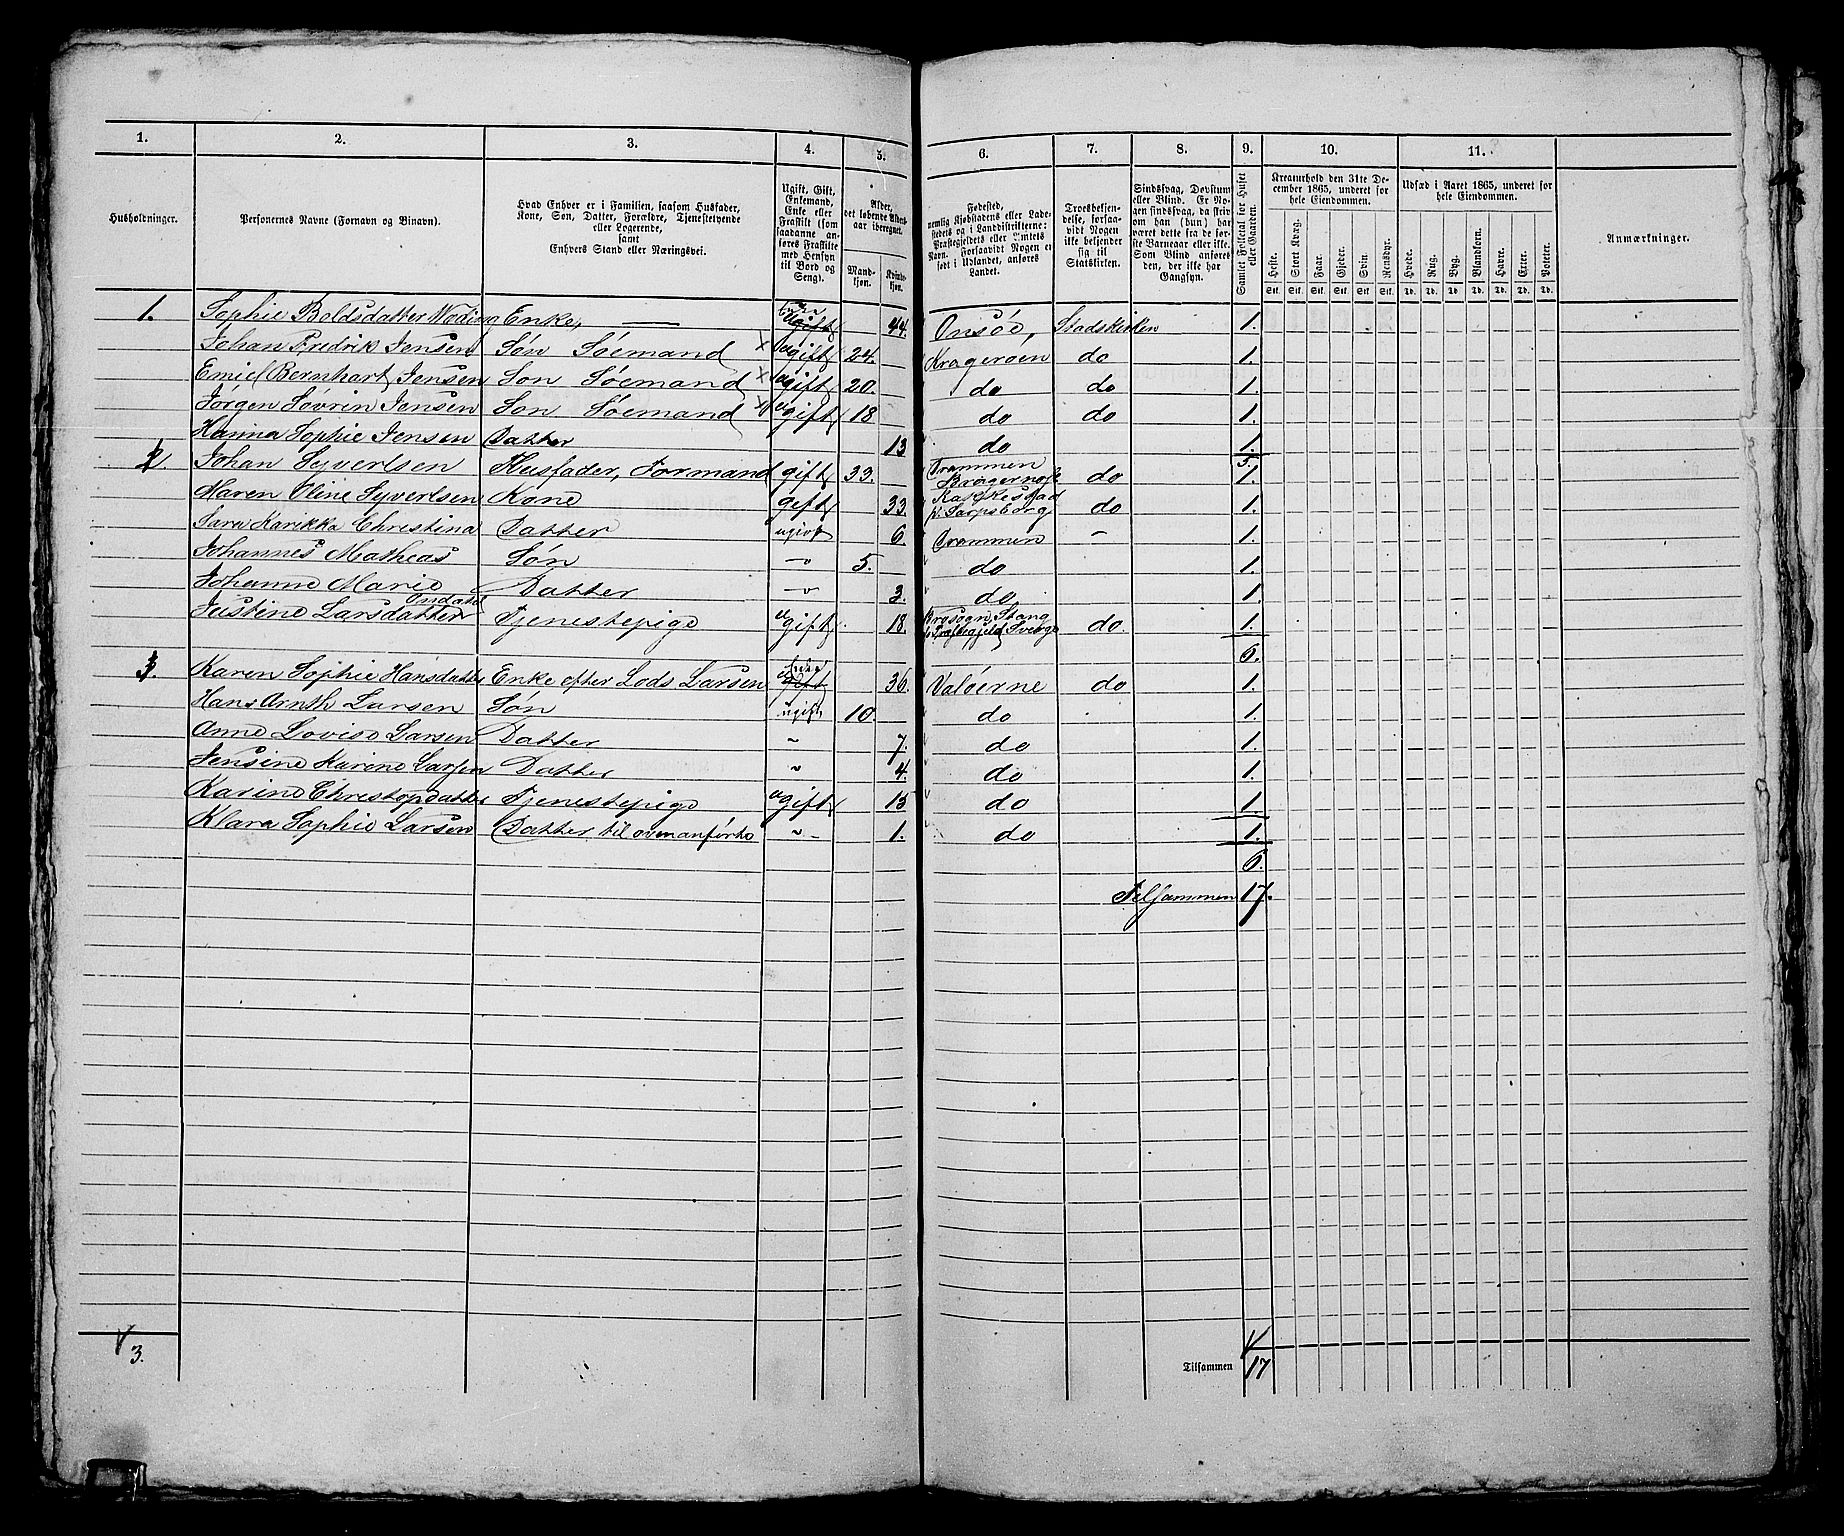 1. 2. 3. 4. 5. 6. 7. 8. 9. 10. 11.
Husholdninger.
Personernes Navne (Fornavn og Binavn).
Hvad Enhver er i Familien, saasom Husfader,
Kone, Søn, Datter, Forældre, Tjenestetyende
eller Logerende,
samt
Enhvers Stand eller Næringsvei.
Ugift, Gift,
Enkemand,
Enke eller
Fraskilt (som
saadanne an-
føres Fraskilte
med Hensyn
til Bord og
Seng).
Alder,
det løbende Alders-
aar iberegnet.
Mand-
kjøn.
Kvinde-
kjøn.
Fødested,
nemlig Kjøbstadens eller Lade-
stedets og i Landdistrikterne:
Præstegjeldets eller Amtets
Navn. Forsaavidt Nogen er
født i Udlandet, anføres
Landet.
Troesbekjen-
delse, forsaa-
vidt Nogen
ikke bekjender
sig til
Statskirken.
Sindssvag, Døvstum
eller Blind. Er No-
gen sindssvag, da skriv
om han (hun) har
været dette fra de før-
ste Barneaar eller ikke.
Som Blind anføres
den, der ikke har
Gangsyn.
Samlet Folketal for Huset
eller Gaarden.
Kreaturhold den 31te De-
cember 1865, underet for
hele Eiendommen.
Heste. Stort Kvæg. Faar. Gjeder. Svin. Rensdyr.
Stk. Stk. Stk. Stk. Stk. Stk.
Udsæd i Aaret 1865, underet for
hele Eiendommen.
Hvede. Rug. Byg. Blandkorn. Havre. Erter. Poteter.
Td. Td. Td. Td. Td. Td. Td.
Anmærkninger.
1. Sophie Boldsdatter Enke, — Enke ugift 44. Onsöe, Stadskirken 1.
Johan Fredrik Jensen Søn Söemand x ugift 24. Krageröen do 1.
Emiel Bernhart Jensen Son Söemand x ugift 20. do do 1.
Jorgen Sovrin Jensen Son Söemand x ugift 18 do do 1.
Hanna Sophie Jensen Datter 13 do 1.
5.
2 Johan Syvertsen Husfader, Formand gift 33. Drammen
do 1.
Maren Oline Syvertsen Kone gift 33.
Sarpsborg do 1.
Sara Christina Datter ugivt 6. Drammen — 1.
Johannes Matheas Søn — 5. do 1.
Johanne Marie Datter — 3. do 1.
Justine Larsdatter Tjenestepige ugift 18. Stang
Sverge do. 1.
6.
3. Karen Sophie Hansdatter Enke efter Lods Larsen Enke gift 36. Valöerne do 1.
Hans Larsen Søn ugift 10. do 1.
Anne Lovise Larsen Datter ~ 7. do 1.
Jensine Karine Larsen Datter ~ 4. do 1.
Karine Tjenestepige ugift 15 do 1.
Klara Sophie Larsen Datter til ~ 1. do 1.
6.
Tilsammen 17.
3.
Tilsammen 17